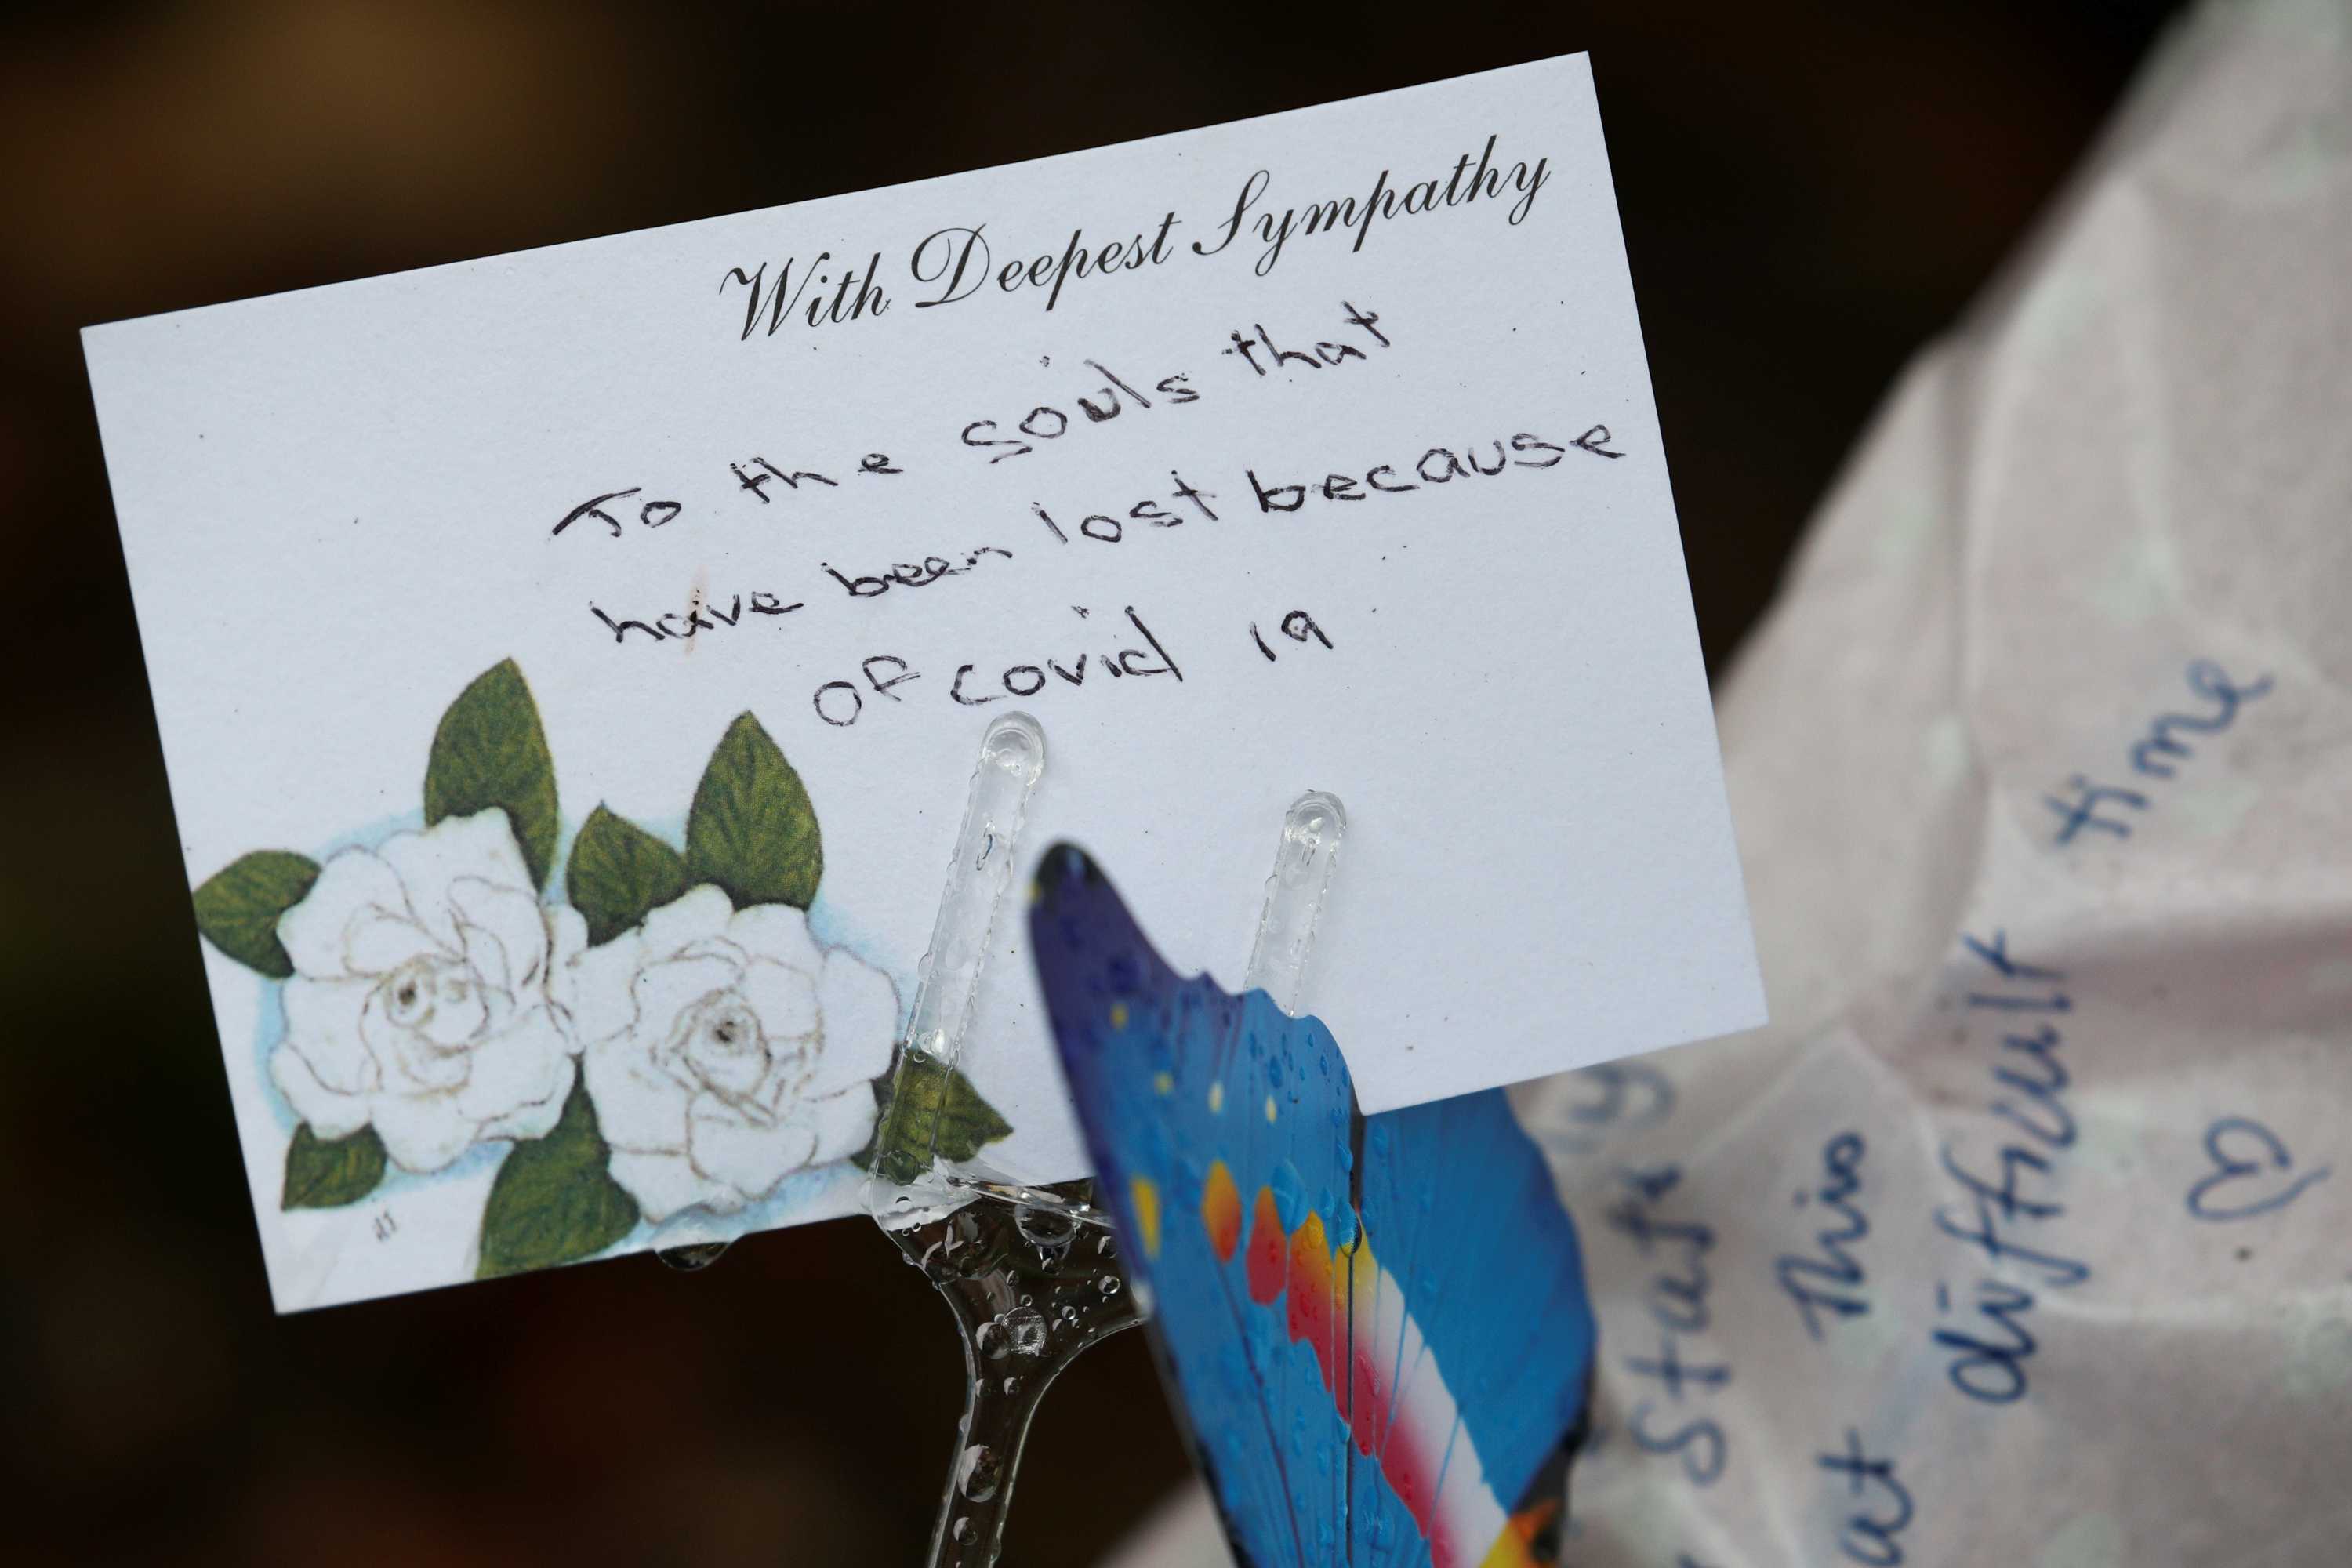 With Deepest Sympathy
To the souls that
have been lost because
of covid 19
at this
difficult time